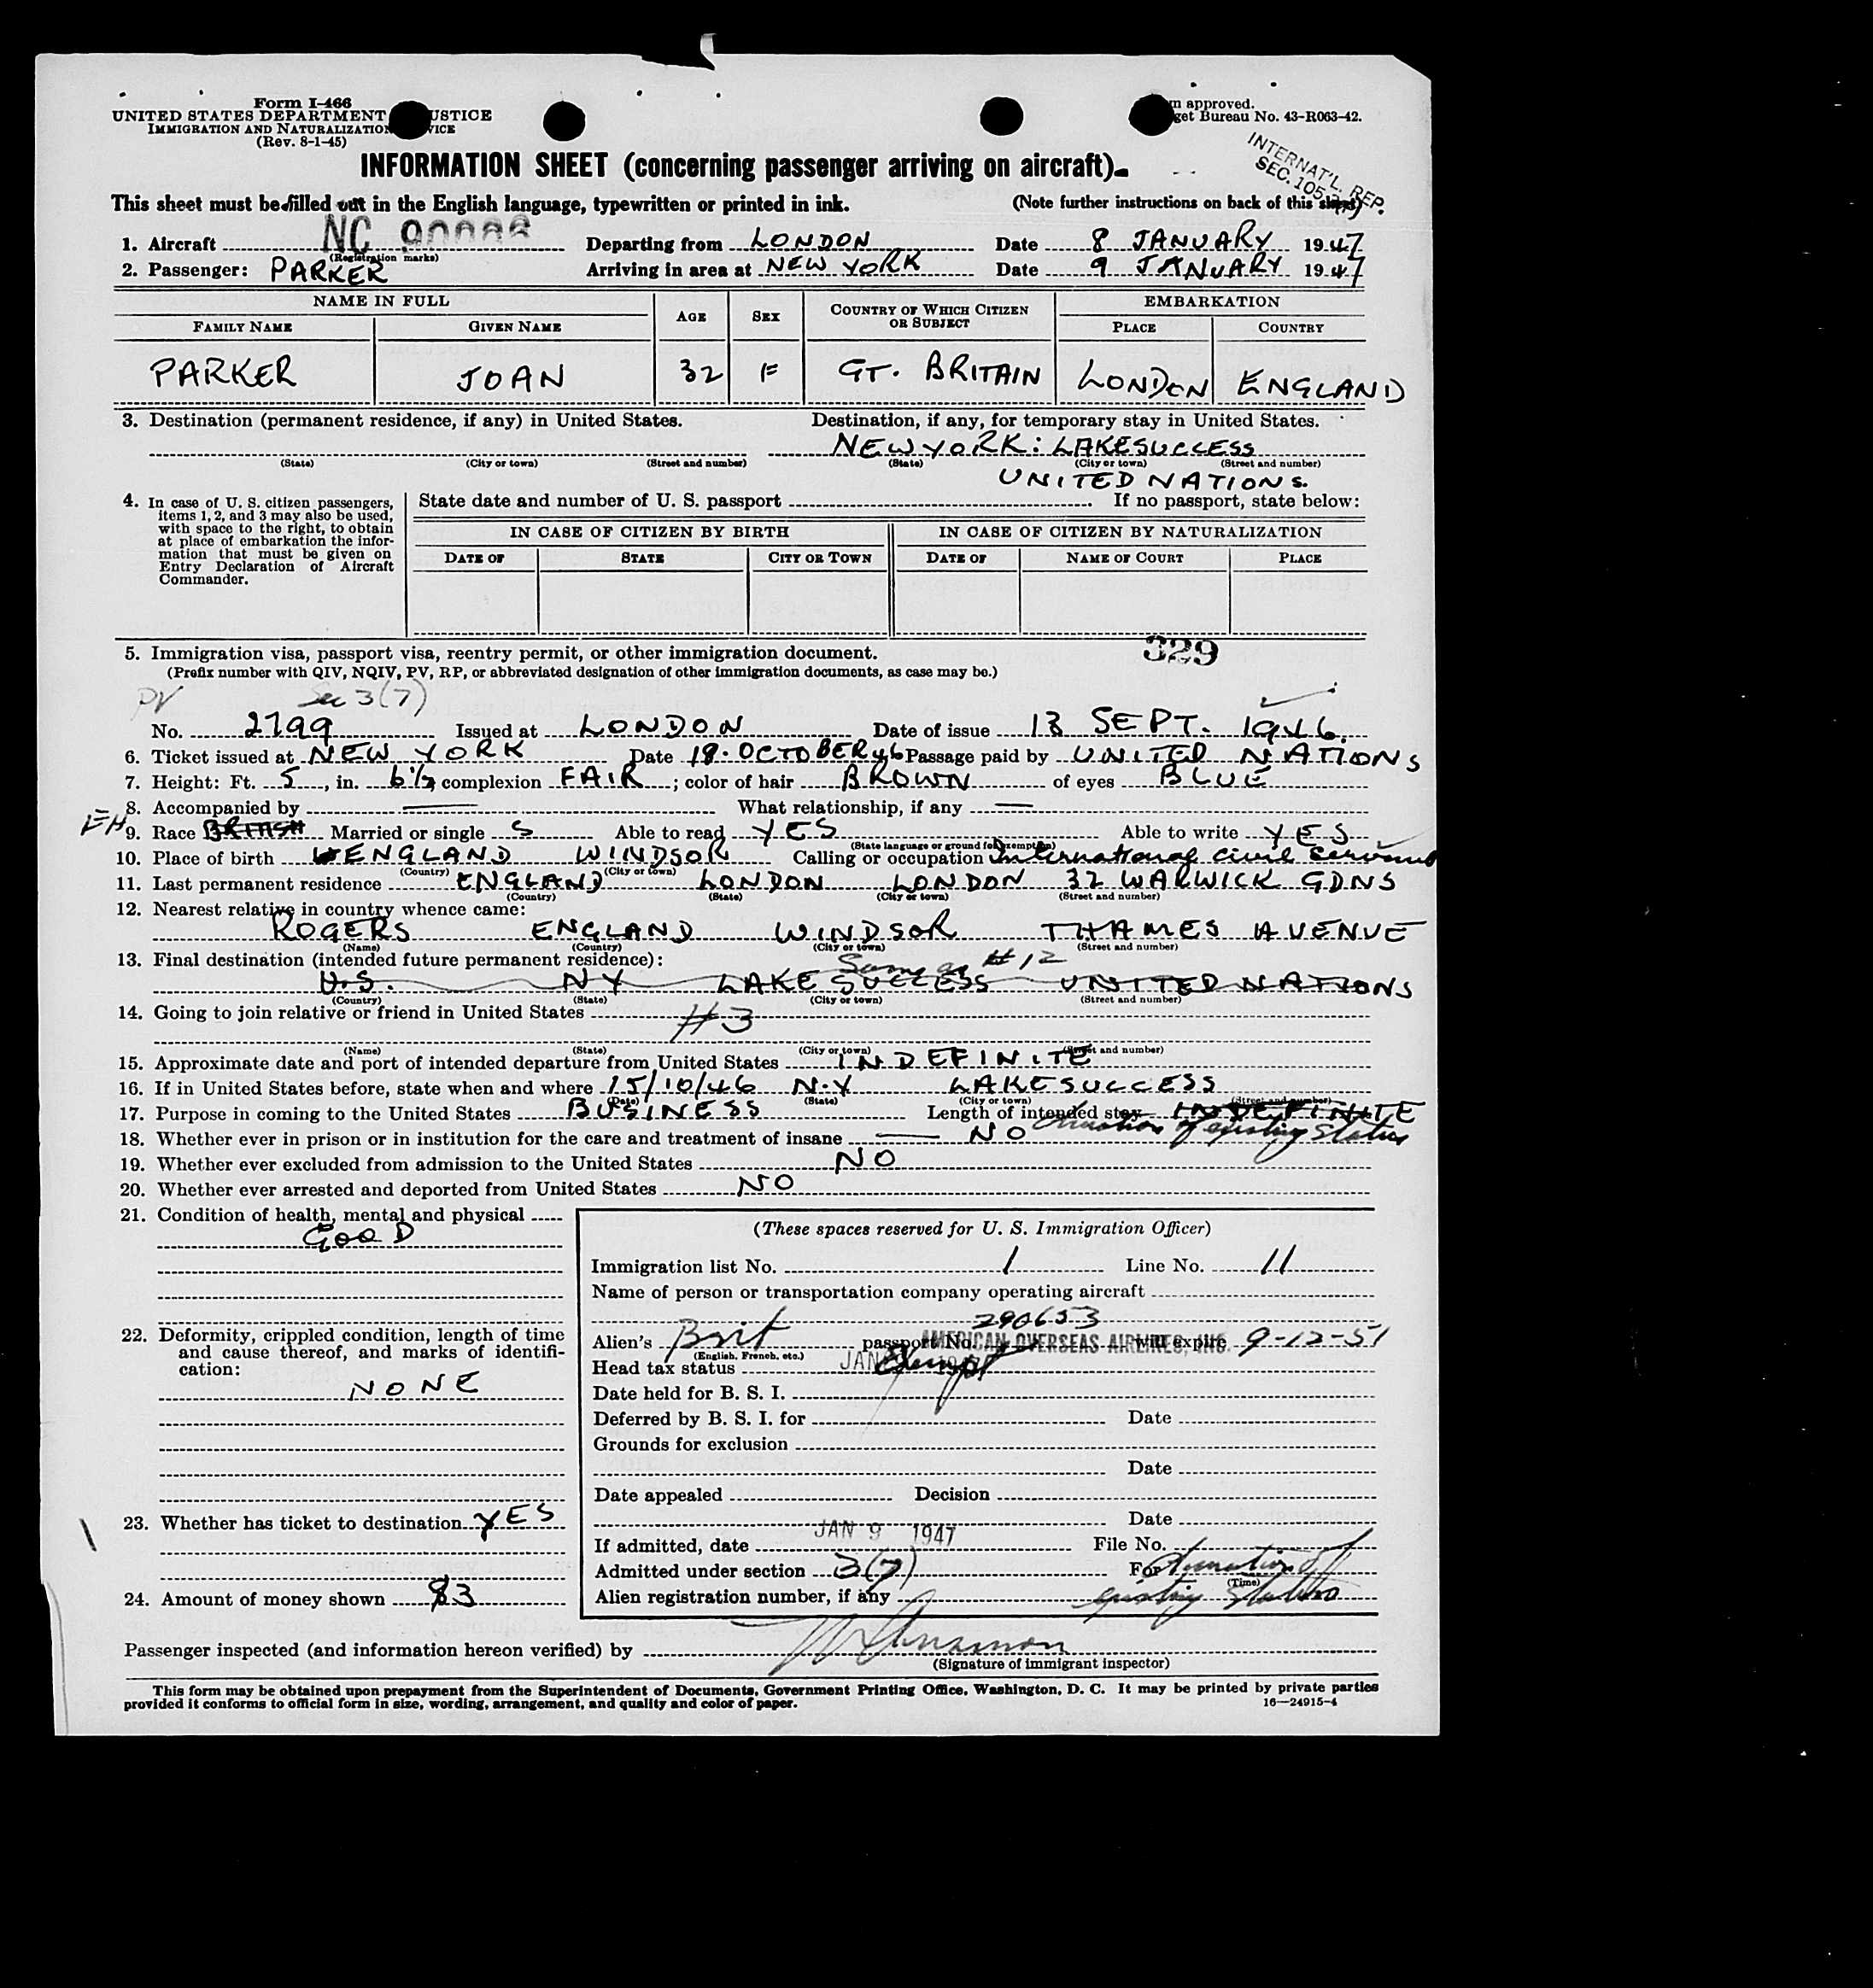 Form I-466
UNITED STATES DEPARTMENT USTICE
IMMIGRATION AND NATURALIZATION VICE
(Rev. 8-1-45)
n approved.
get Bureau No. 43-R063-42.
INTERNAT'L. REP.
SEC. 105
INFORMATION SHEET (concerning passenger arriving on aircraft)
This sheet must be filled out in the English language, typewritten or printed in ink. (Note further instructions on back of this sheet)
1. Aircraft NC Departing from LONDON Date 8 JANUARY 1947
(Registration marks)
2. Passenger: PARKER Arriving in area at NEW YORK Date 9 JANUARY 1947
NAME IN FULL AGE SEX COUNTRY OF WHICH CITIZEN OR SUBJECT EMBARKATION
FAMILY NAME GIVEN NAME PLACE COUNTRY
PARKER JOAN 32 F GT. BRITAIN LONDON ENGLAND
3. Destination (permanent residence, if any) in United States. Destination, if any, for temporary stay in United States.
NEW YORK: LAKE SUCCESS
(State) (City or town) (Street and number) (State) (City or town) (Street and number)
UNITED NATIONS.
4. In case of U. S. citizen passengers, items 1, 2, and 3 may also be used, with space to the right, to obtain at place of embarkation the information that must be given on Entry Declaration of Aircraft Commander.
State date and number of U. S. passport If no passport, state below:
IN CASE OF CITIZEN BY BIRTH IN CASE OF CITIZEN BY NATURALIZATION
DATE OF STATE CITY OR TOWN DATE OF NAME OF COURT PLACE
329
5. Immigration visa, passport visa, reentry permit, or other immigration document.
(Prefix number with QIV, NQIV, PV, RP, or abbreviated designation of other immigration documents, as case may be.)
PV Sec 3(7)
No. 2799 Issued at LONDON Date of issue 13 SEPT. 1946.
6. Ticket issued at NEW YORK Date 18. OCTOBER 46 Passage paid by UNITED NATIONS
7. Height: Ft. 5, in. 6½, complexion FAIR; color of hair BROWN of eyes BLUE
8. Accompanied by — What relationship, if any —
EH
9. Race BRITISH Married or single S Able to read YES Able to write YES
(State language or ground for exemption)
10. Place of birth ENGLAND WINDSOR Calling or occupation International Civil Servant
(Country) (City or town)
11. Last permanent residence ENGLAND LONDON LONDON 32 WARWICK GDNS
(Country) (State) (City or town) (Street and number)
12. Nearest relative in country whence came:
ROGERS ENGLAND WINDSOR THAMES AVENUE
(Name) (Country) (City or town) (Street and number)
13. Final destination (intended future permanent residence): Same as #12
U.S. NY LAKE SUCCESS UNITED NATIONS
(Country) (State) (City or town) (Street and number)
14. Going to join relative or friend in United States #3
(Name) (State) (City or town) (Street and number)
15. Approximate date and port of intended departure from United States INDEFINITE
16. If in United States before, state when and where 15/10/46 N.Y LAKE SUCCESS
(Date) (State) (City or town) (Street and number)
17. Purpose in coming to the United States BUSINESS Length of intended stay INDEFINITE
duration of existing status
18. Whether ever in prison or in institution for the care and treatment of insane — NO
19. Whether ever excluded from admission to the United States NO
20. Whether ever arrested and deported from United States NO
21. Condition of health, mental and physical
GOOD
22. Deformity, crippled condition, length of time and cause thereof, and marks of identification:
NONE
23. Whether has ticket to destination YES
24. Amount of money shown $3
(These spaces reserved for U. S. Immigration Officer)
Immigration list No. 1 Line No. 11
Name of person or transportation company operating aircraft
290653
AMERICAN OVERSEAS AIRLINES, INC.
Alien's Brit passport No. will expire 9-12-51
(English, French, etc.)
Head tax status Exempt
JAN
Date held for B. S. I.
Deferred by B. S. I. for Date
Grounds for exclusion
Date
Date appealed Decision
Date
If admitted, date JAN 9 1947 File No.
Admitted under section 3(7) For duration of
(Time)
Alien registration number, if any existing status
Passenger inspected (and information hereon verified) by
(Signature of immigrant inspector)
This form may be obtained upon prepayment from the Superintendent of Documents, Government Printing Office, Washington, D. C. It may be printed by private parties
provided it conforms to official form in size, wording, arrangement, and quality and color of paper. 16—24915-4